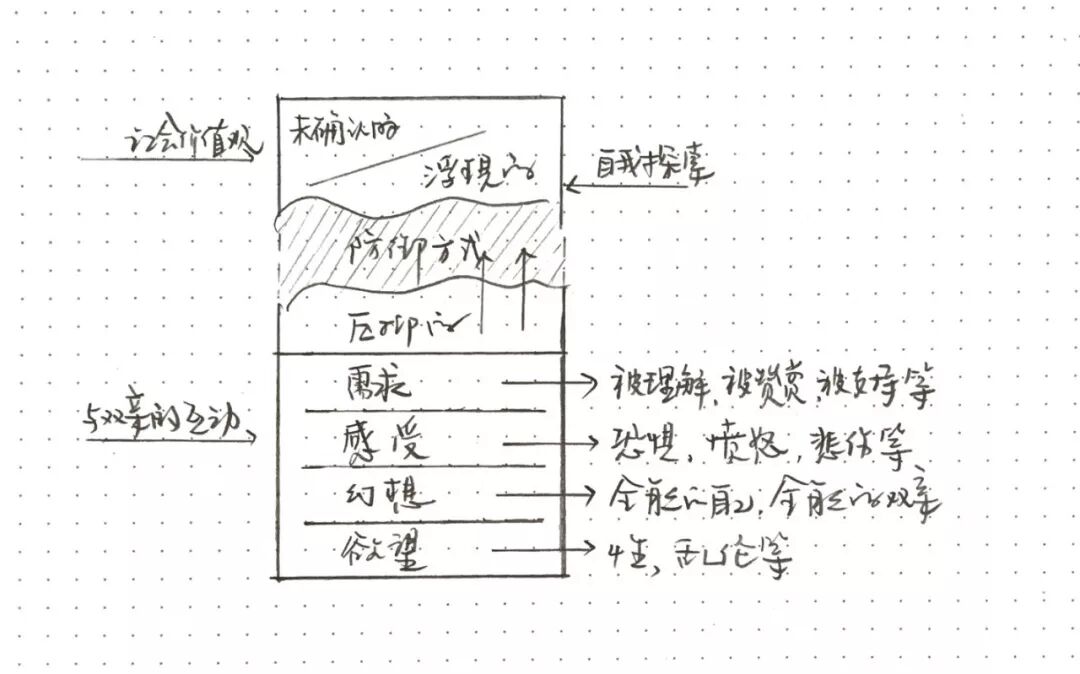 社会价值观
未确认的
浮现的
自我探索
防御方式
压抑的
需求
被理解、被赞赏、被支持等
与双亲的互动
感受
恐惧，愤怒，悲伤等
幻想
全能的自己，全能的双亲
欲望
性，乱伦等